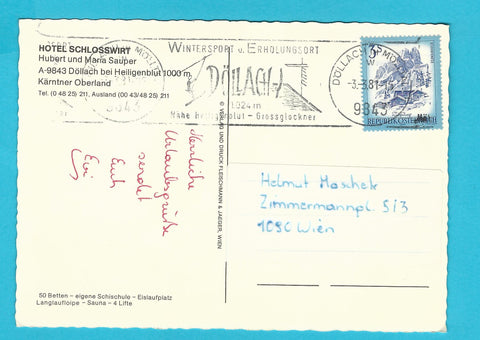 HOTEL SCHLOSSWIRT
Hubert und Maria Sauper
A-9843 Döllach bei Heiligenblut 1000 m
Kärntner Oberland
Tel. (0 48 25) 211, Ausland (00 43/48 25) 211
WINTERSPORT U. ERHOLUNGSORT
DÖLLACH
1.024 m
Nähe Heiligenblut - Grossglockner
DÖLLACH
-3.3.81
9843
REPUBLIK ÖSTERREICH
Herzliche
Urlaubsgrüße
sendet
Euch
Evi
© VERLAG UND DRUCK FLEISCHMANN & JAEGER, WIEN
Helmut Maschek
Zimmermannpl. 5/3
1090 Wien
50 Betten – eigene Schischule – Eislaufplatz
Langlaufloipe – Sauna – 4 Lifte